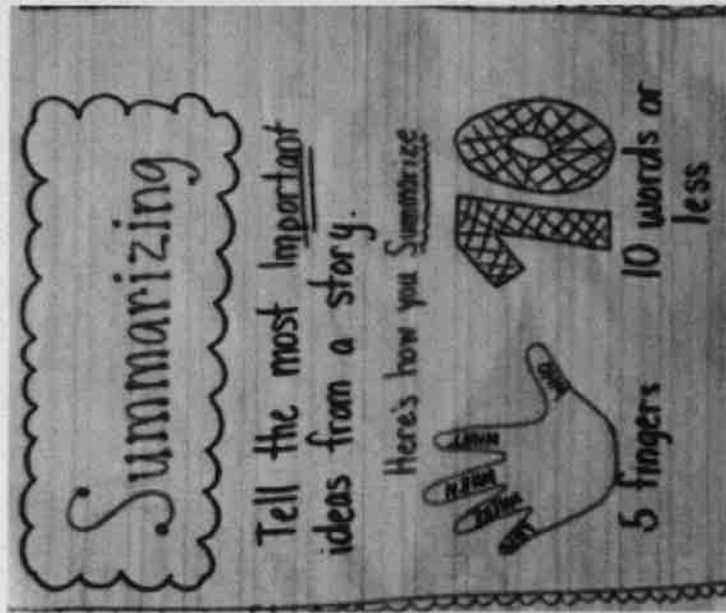 Summarizing
Tell the most Important
ideas from a story.
Here's how you Summarize
WHO
WHAT
WHEN
WHERE
10
5 fingers
10 words or
less